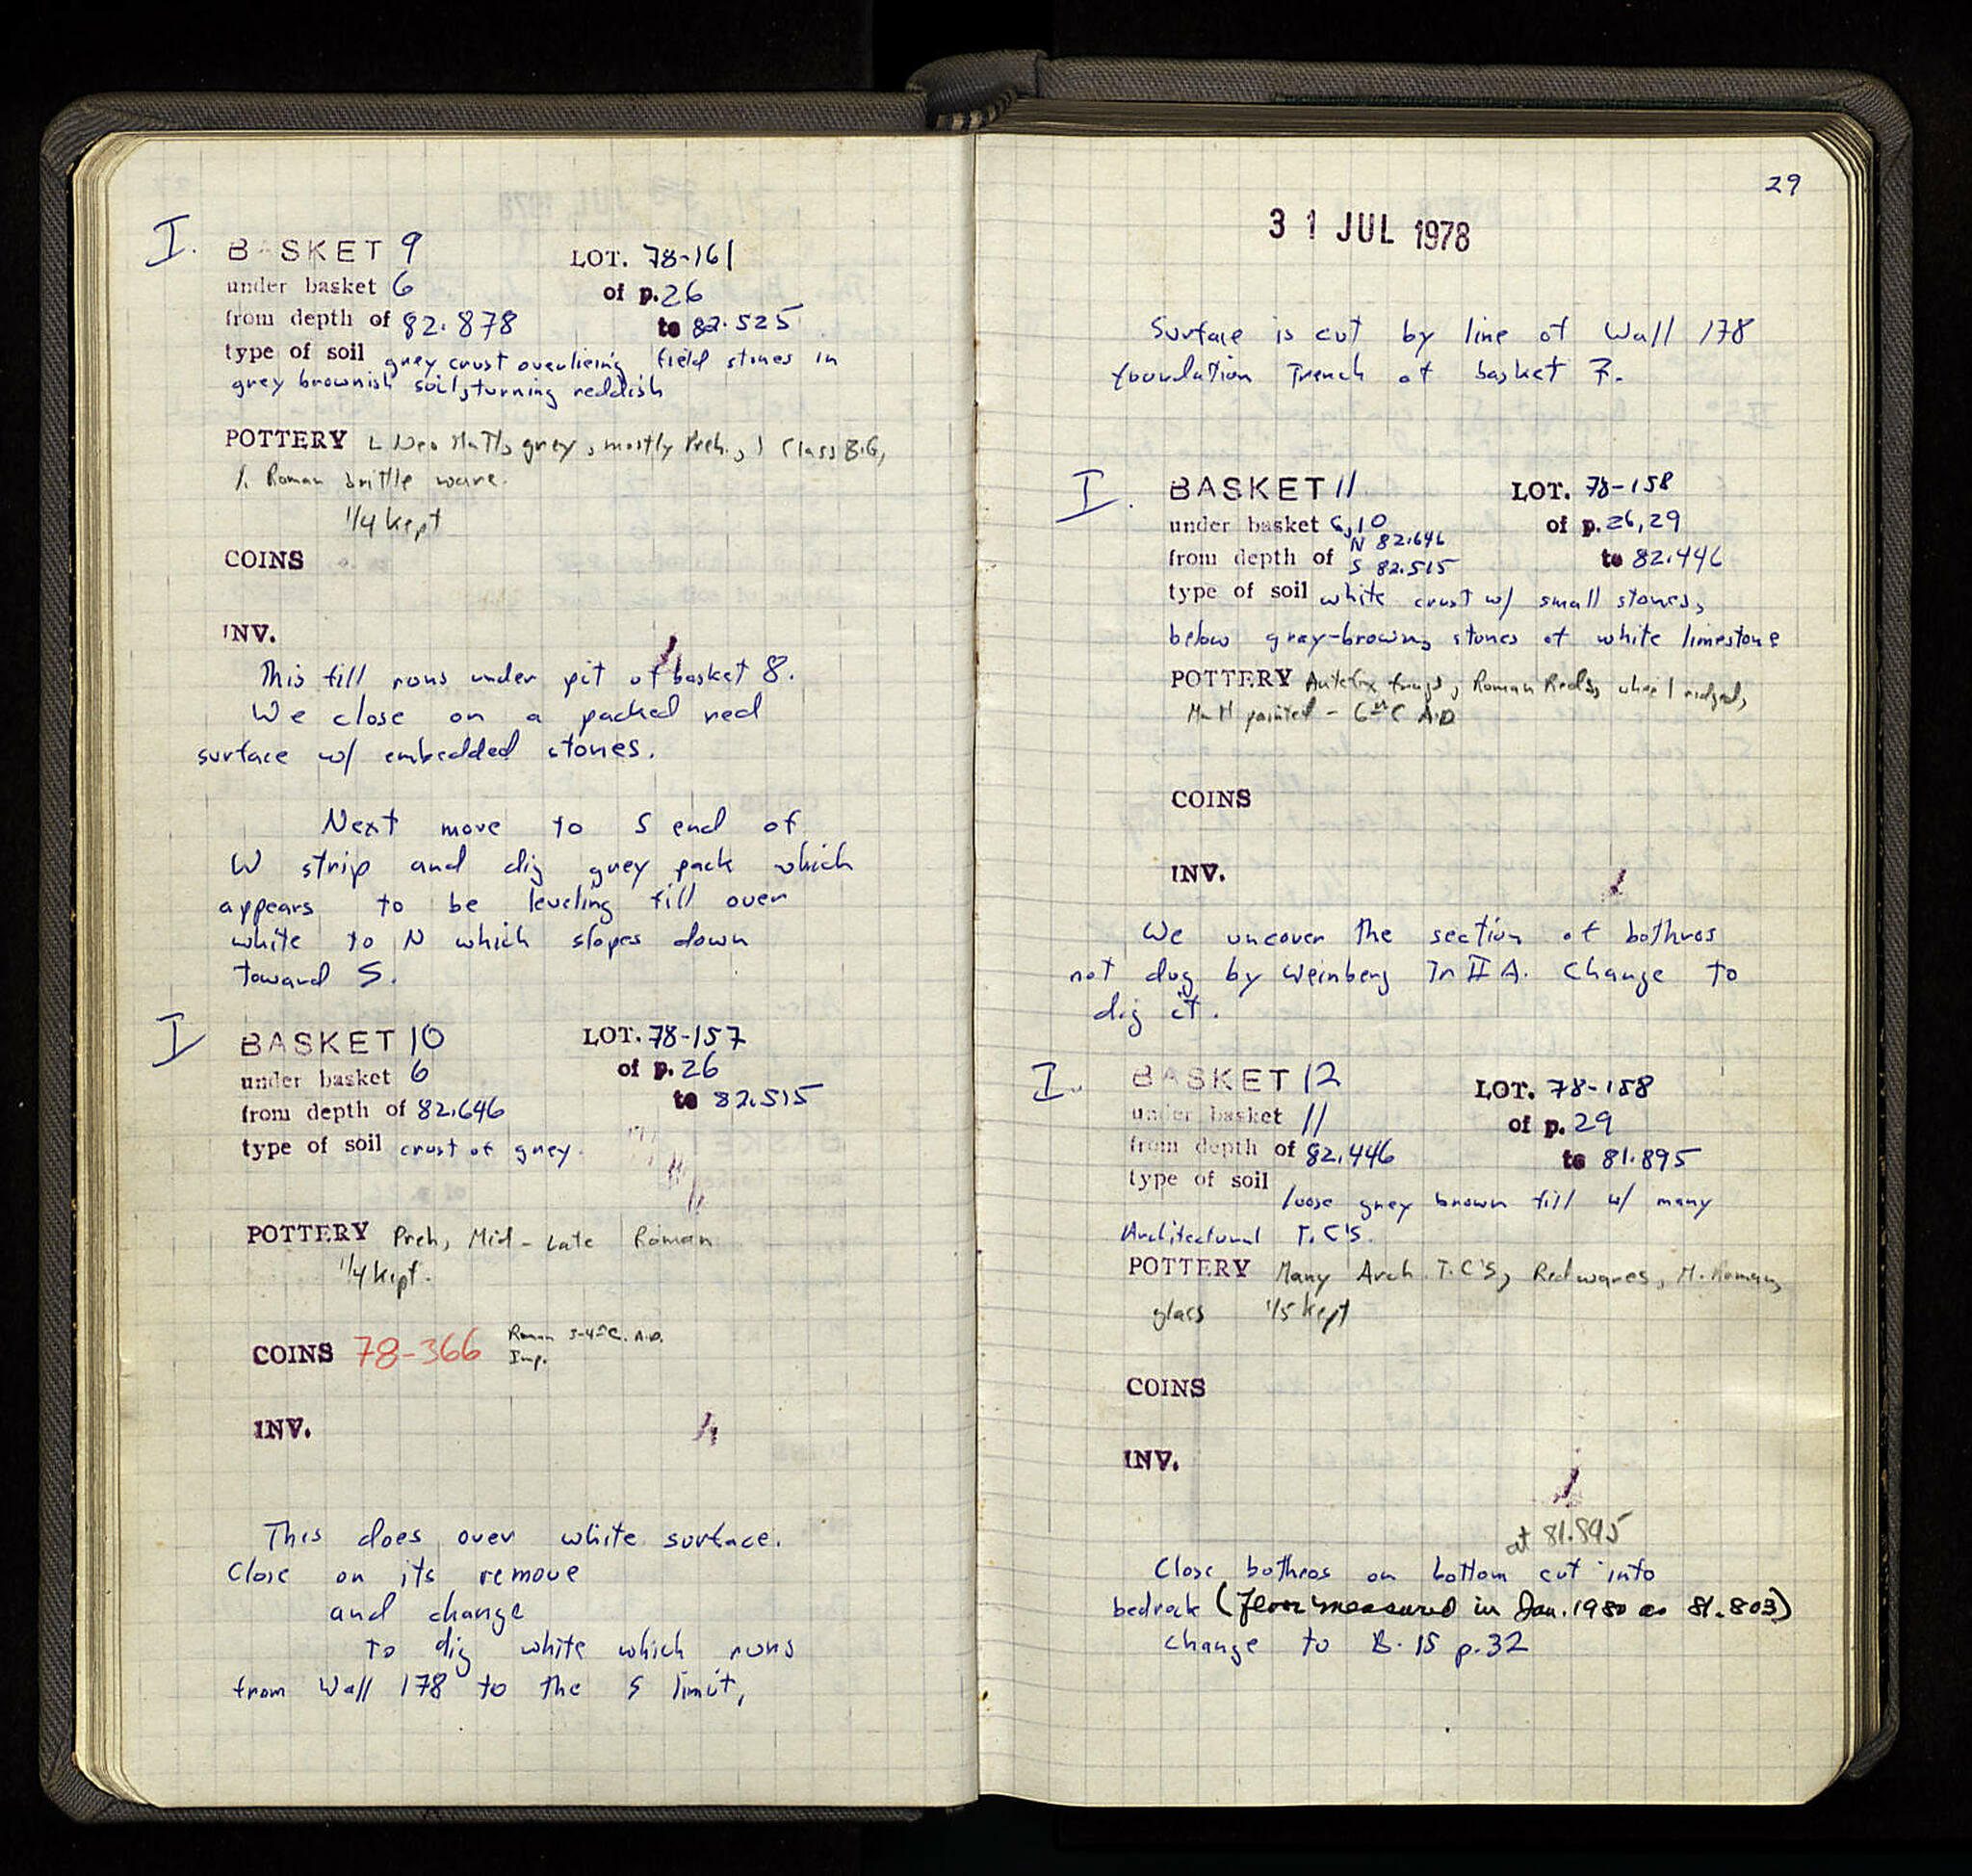 I. BASKET 9 LOT. 78-161
under basket 6 of p. 26
from depth of 82.878 to 82.525
type of soil grey crust overlieing field stones in
grey brownish soil, turning reddish
POTTERY L Neo Matt, grey, mostly Preh., 1 Class B.G,
1. Roman brittle ware.
1/4 kept
COINS
INV.
This fill runs under pit of basket 8.
We close on a packed red
surface w/ embedded stones.
Next move to S end of
W strip and dig grey pack which
appears to be leveling fill over
white to N which slopes down
toward S.
I BASKET 10 LOT. 78-157
under basket 6 of p. 26
from depth of 82.646 to 82.515
type of soil crust of grey.
POTTERY Preh, Mid-Late Roman
1/4 kept.
COINS 78-366 Roman 3-4th C. A.D.
Imp.
INV.
This does over white surface.
Close on its remove
and change
to dig white which runs
from Wall 178 to the S limit,
29
31 JUL 1978
Surface is cut by line of Wall 178
foundation trench of basket 7.
I. BASKET 11 LOT. 78-158
under basket 6,10 of p. 26,29
from depth of N 82.646 S 82.515 to 82.446
type of soil white crust w/ small stones,
below gray-brown, stones of white limestone
POTTERY Antefix frags, Roman Reds, wheel ridged,
painted - 6th C A.D
COINS
INV.
We uncover the section of bothros
not dug by Weinberg in II A. Change to
dig it.
I. BASKET 12 LOT. 78-158
under basket 11 of p. 29
from depth of 82.446 to 81.895
type of soil loose grey brown fill w/ many
Architectural T.C'S.
POTTERY Many Arch. T.C'S, Red wares, M. Roman,
glass 1/5 kept
COINS
INV.
at 81.895
Close bothros on bottom cut into
bedrock (floor measured in Jan. 1980 as 81.803)
change to B. 15 p. 32